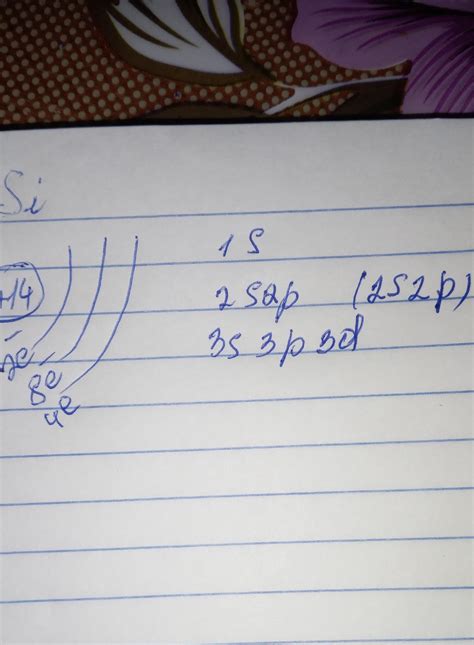 Si
+14
1s
2s2p (2s2p)
3s 3p 3d
2e
8e
4e